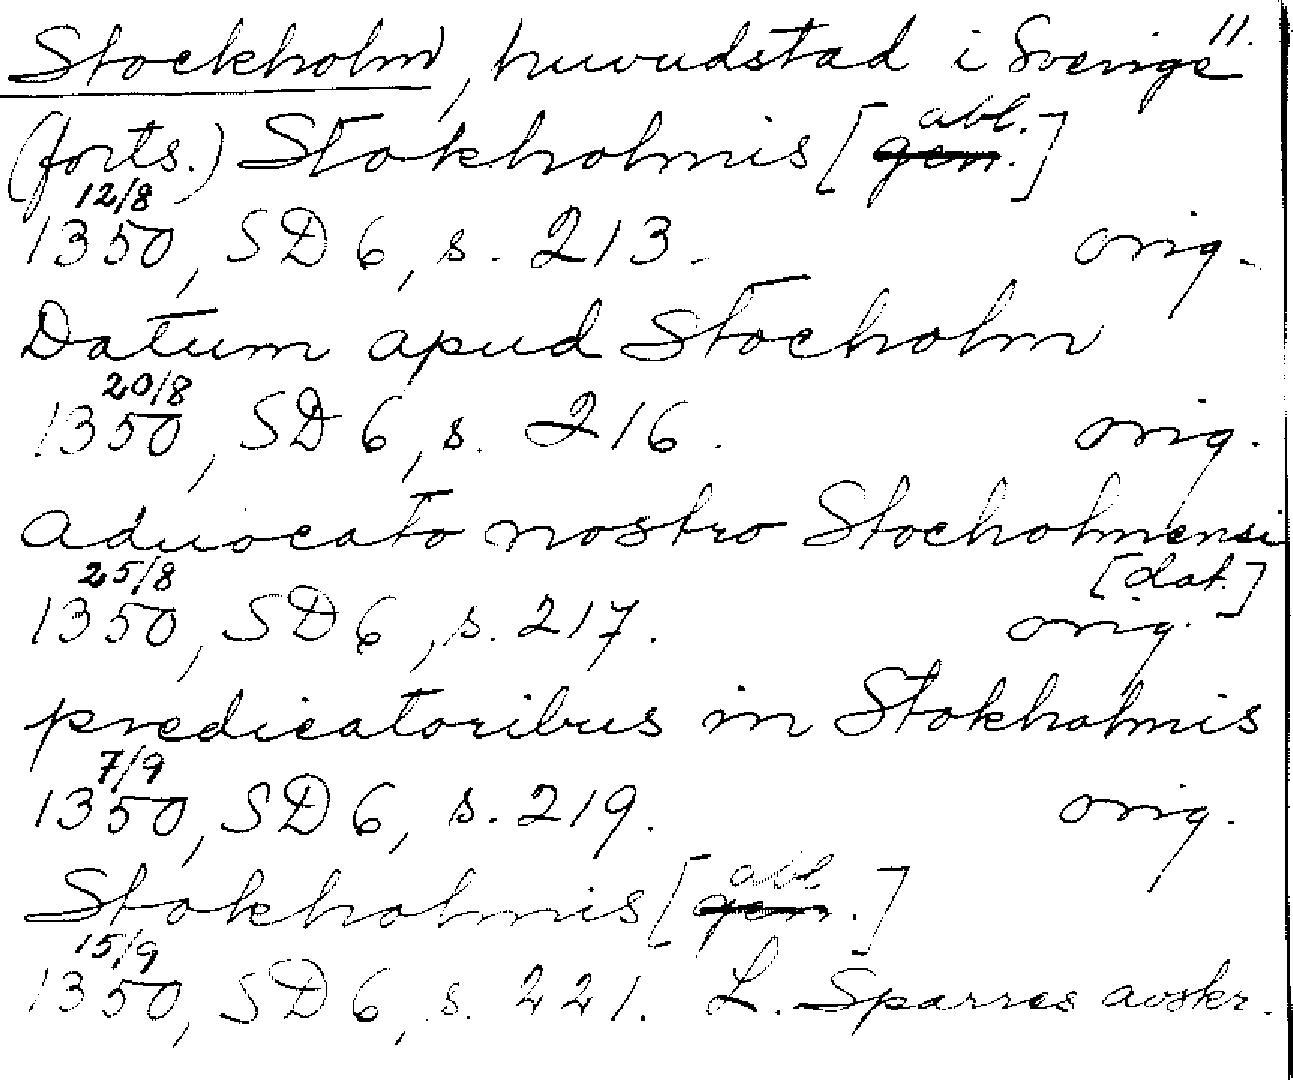 Stockholm, huvudstad i Sverige 11.
(forts.) Stokholmis [gen. abl.]
1350 12/8, SD 6, s. 213. orig.
Datum apud Stocholm
1350 20/8, SD 6, s. 216. orig.
aduocato nostro Stocholmensi
[dat.]
1350 25/8, SD 6, s. 217. orig.
predicatoribus in Stokholmis
1350 7/9, SD 6, s. 219. orig.
Stokholmis [gen. abl.]
1350 15/9, SD 6, s. 221. L. Sparres avskr.